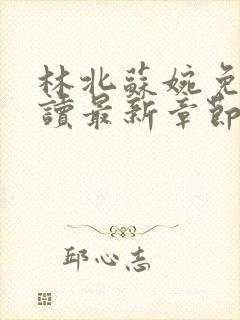 林北蘇婉免
讀最新章節
邱心志